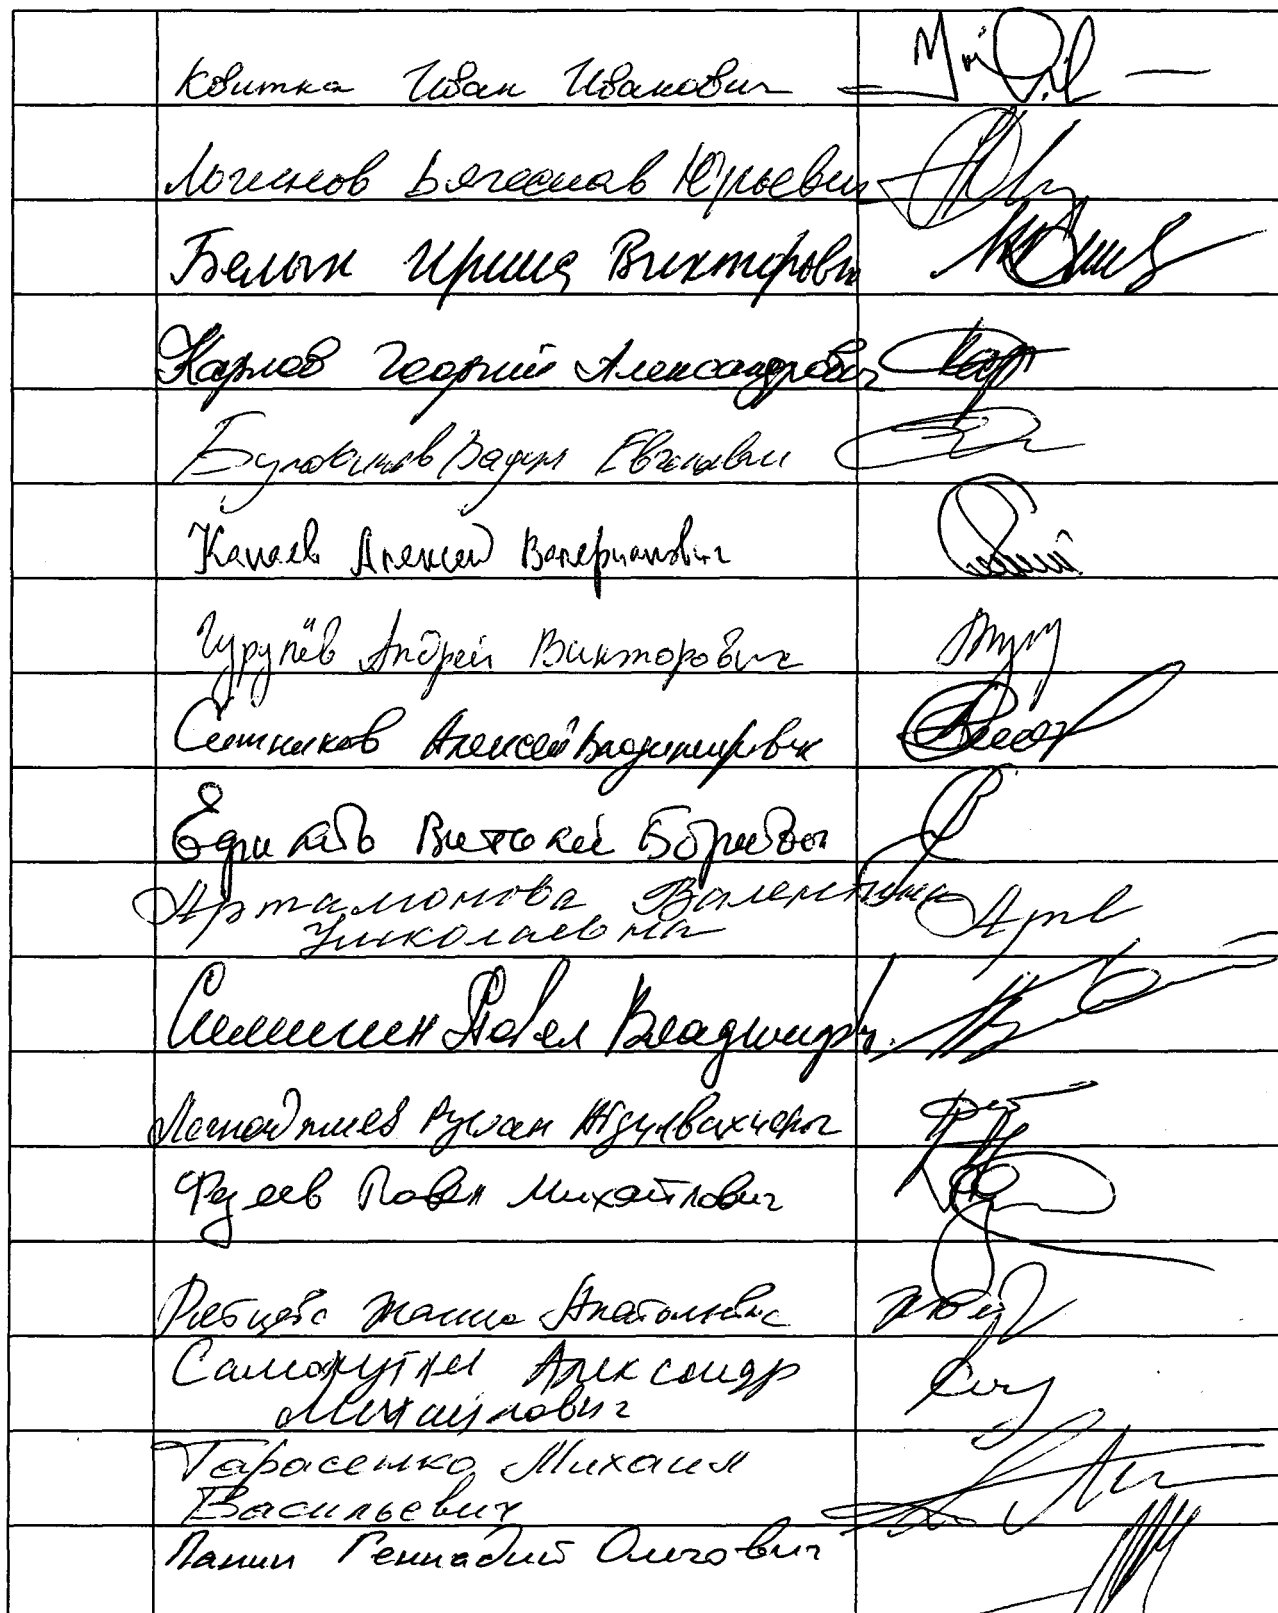 Квитка Иван Иванович
Логинов Вячеслав Юрьевич
Белых Ирина Викторовн
Карлов Георгий Александрович
Булавинов Вадим Евгеньевич
Канаев Алексей Валерианович
Гурулёв Андрей Викторович
Ситников Алексей Владимирович
Виталий Борисович
Артамонова Валентина
Николаевна
Симигин Павел Владимирович
Руслан Абдулвахидович
Федяев Павел Михайлович
Рябцева Жанна Анатольевна
Самокутяев Александр
Михайлович
Тарасенко Михаил
Васильевич
Панин Геннадий Олегович